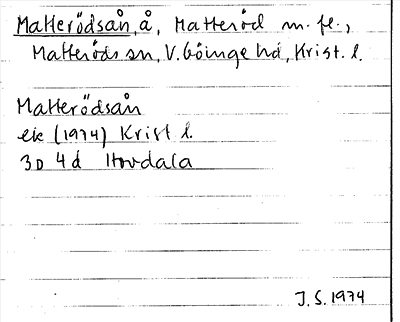 Matterödsån, å, Matteröd m. fl.,
Matteröds sn, V. Göinge hd, Krist. l.
Matterödsån
ek (1974) Krist l.
3D 4d Hovdala
J. S. 1974